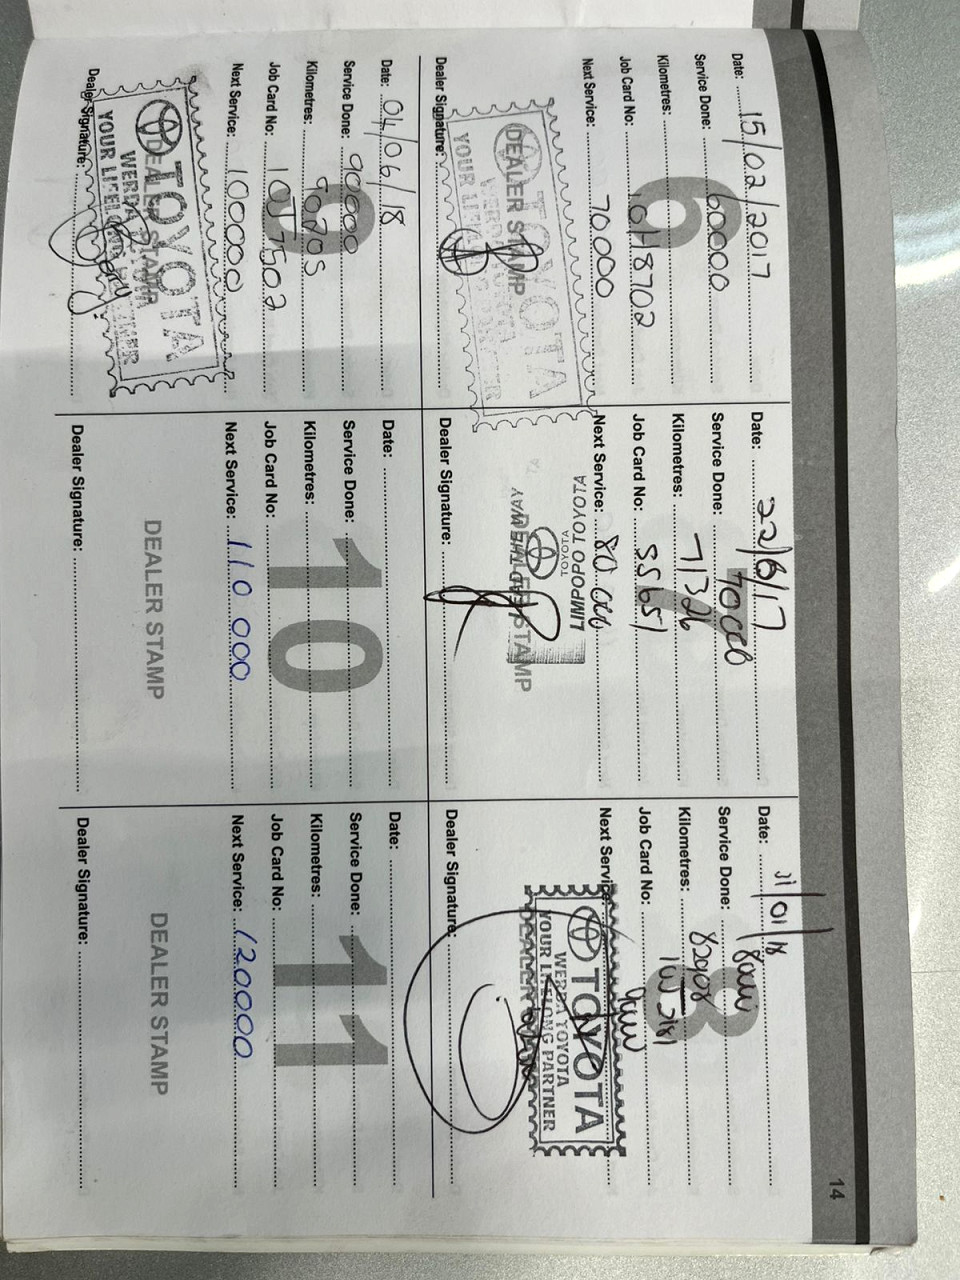 14
6
Date: 15/02/2017
Service Done: 60000
Kilometres:
Job Card No: 10H8702
Next Service: 70000
DEALER STAMP
TOYOTA
YOUR
Dealer Signature:
7
Date: 22/6/17
Service Done: 70000
Kilometres: 71326
Job Card No: 55651
Next Service: 80 000
LIMPOPO TOYOTA
TOYOTA
DEALER STAMP
Dealer Signature:
8
Date: 31/01/18
Service Done: 80000
Kilometres: 82908
Job Card No:
Next Service: 90000
TOYOTA
WERDA TOYOTA
YOUR LIFELONG PARTNER
DEALER
Dealer Signature:
9
Date: 04/06/18
Service Done: 90000
Kilometres:
Job Card No: 10J7502
Next Service: 100000
TOYOTA
DEALER STAMP
WERDA
YOUR LIFELONG
Dealer Signature:
10
Date:
Service Done:
Kilometres:
Job Card No:
Next Service: 110 000
DEALER STAMP
Dealer Signature:
11
Date:
Service Done:
Kilometres:
Job Card No:
Next Service: 120000
DEALER STAMP
Dealer Signature: